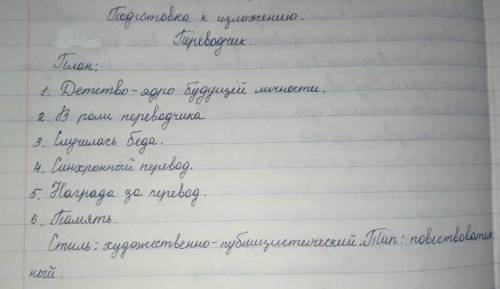 Подготовка к изложению.
Переводчик.
План:
1. Детство-ядро будущей личности.
2. В роли переводчика
3. Случилась беда.
4. Синхронный перевод.
5. Награда за перевод.
6. Память.
Стиль: художественно-публицистический. Тип: повествователь
ный.